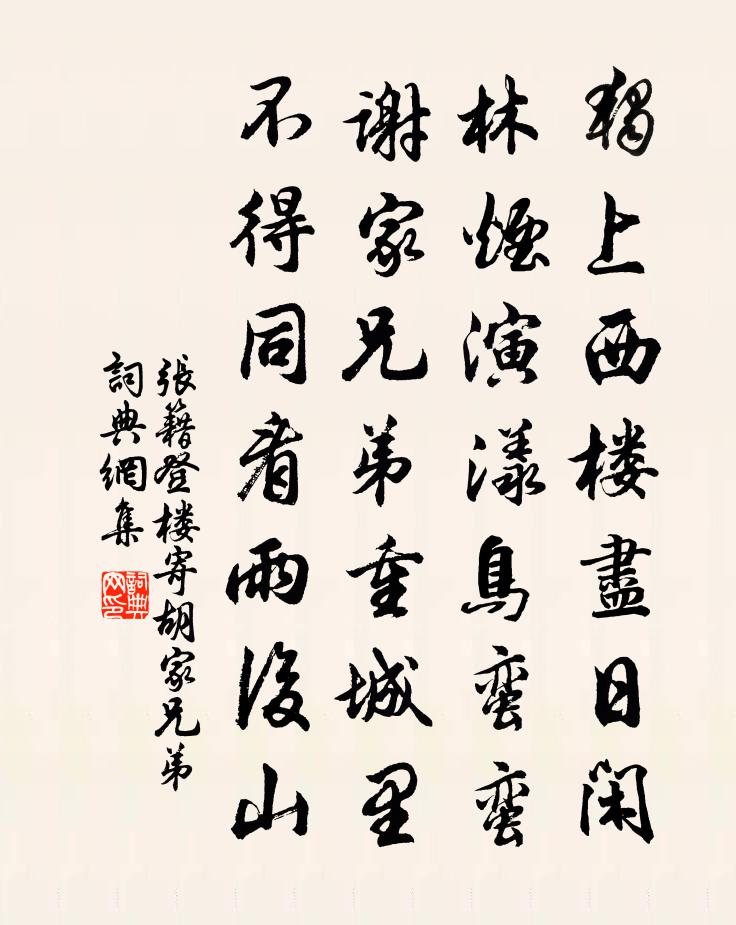 獨上西楼盡日閑
林煙演漾鳥蛮蛮
謝家兄弟重城里
不得同看雨後山
張籍登楼寄胡家兄弟
詞典網集
詞典网印